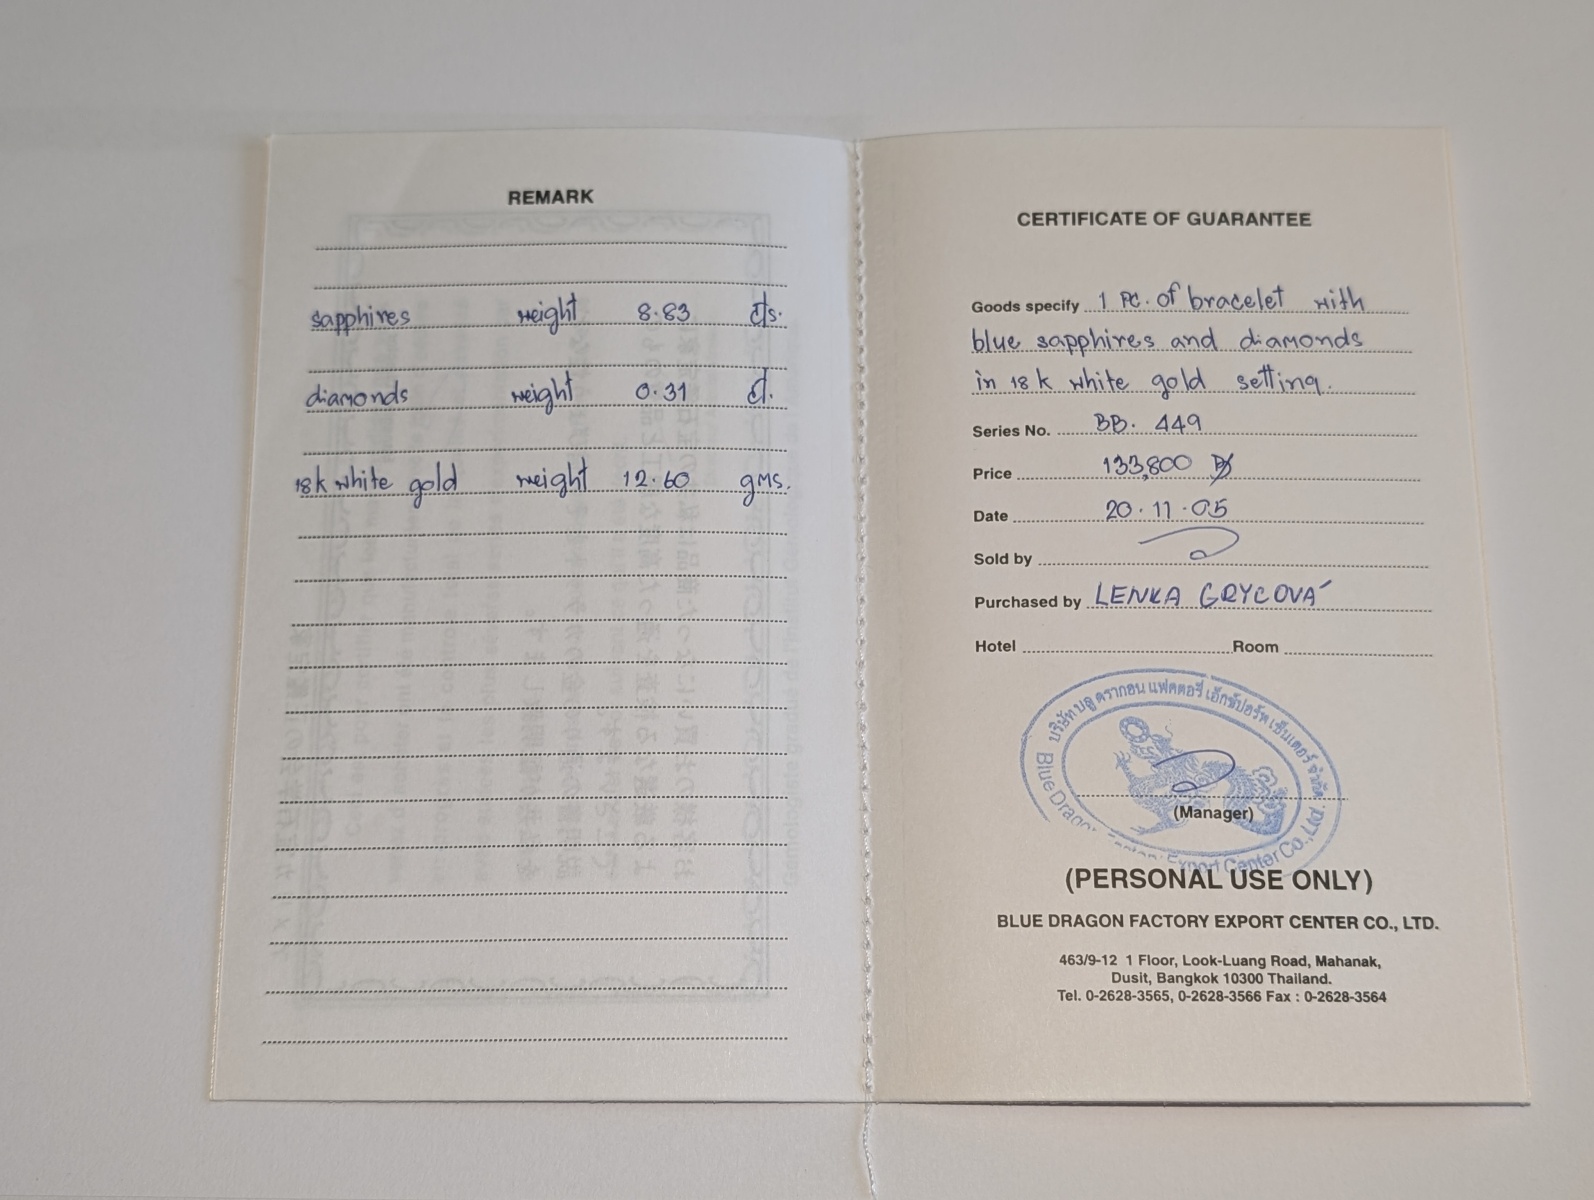 REMARK
sapphires weight 8.83 cts.
diamonds weight 0.31 ct.
18k white gold weight 12.60 gms.
CERTIFICATE OF GUARANTEE
Goods specify 1 PC. of bracelet with
blue sapphires and diamonds
in 18k white gold setting.
Series No. BB. 449
Price 133,800 ฿
Date 20.11.05
Sold by
Purchased by LENKA GRYCOVÁ
Hotel Room
บริษัท บลู ดรากอน แฟคตอรี่ เอ็กซ์ปอร์ท เซ็นเตอร์ จำกัด
Blue Dragon Factory Export Center Co., LTD.
(Manager)
(PERSONAL USE ONLY)
BLUE DRAGON FACTORY EXPORT CENTER CO., LTD.
463/9-12 1 Floor, Look-Luang Road, Mahanak,
Dusit, Bangkok 10300 Thailand.
Tel. 0-2628-3565, 0-2628-3566 Fax : 0-2628-3564